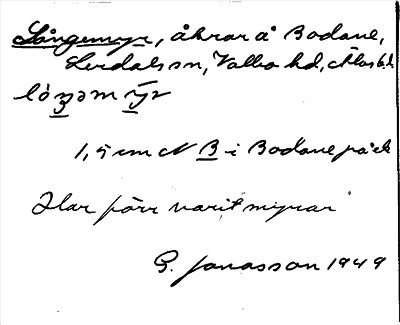 Långemyr, åkrar å Bodane,
Lerdals sn, Valbo hd, Älvsb. l.
1,5 cm N B i Bodane på ek
Har förr varit myrar
G. Jonasson 1949